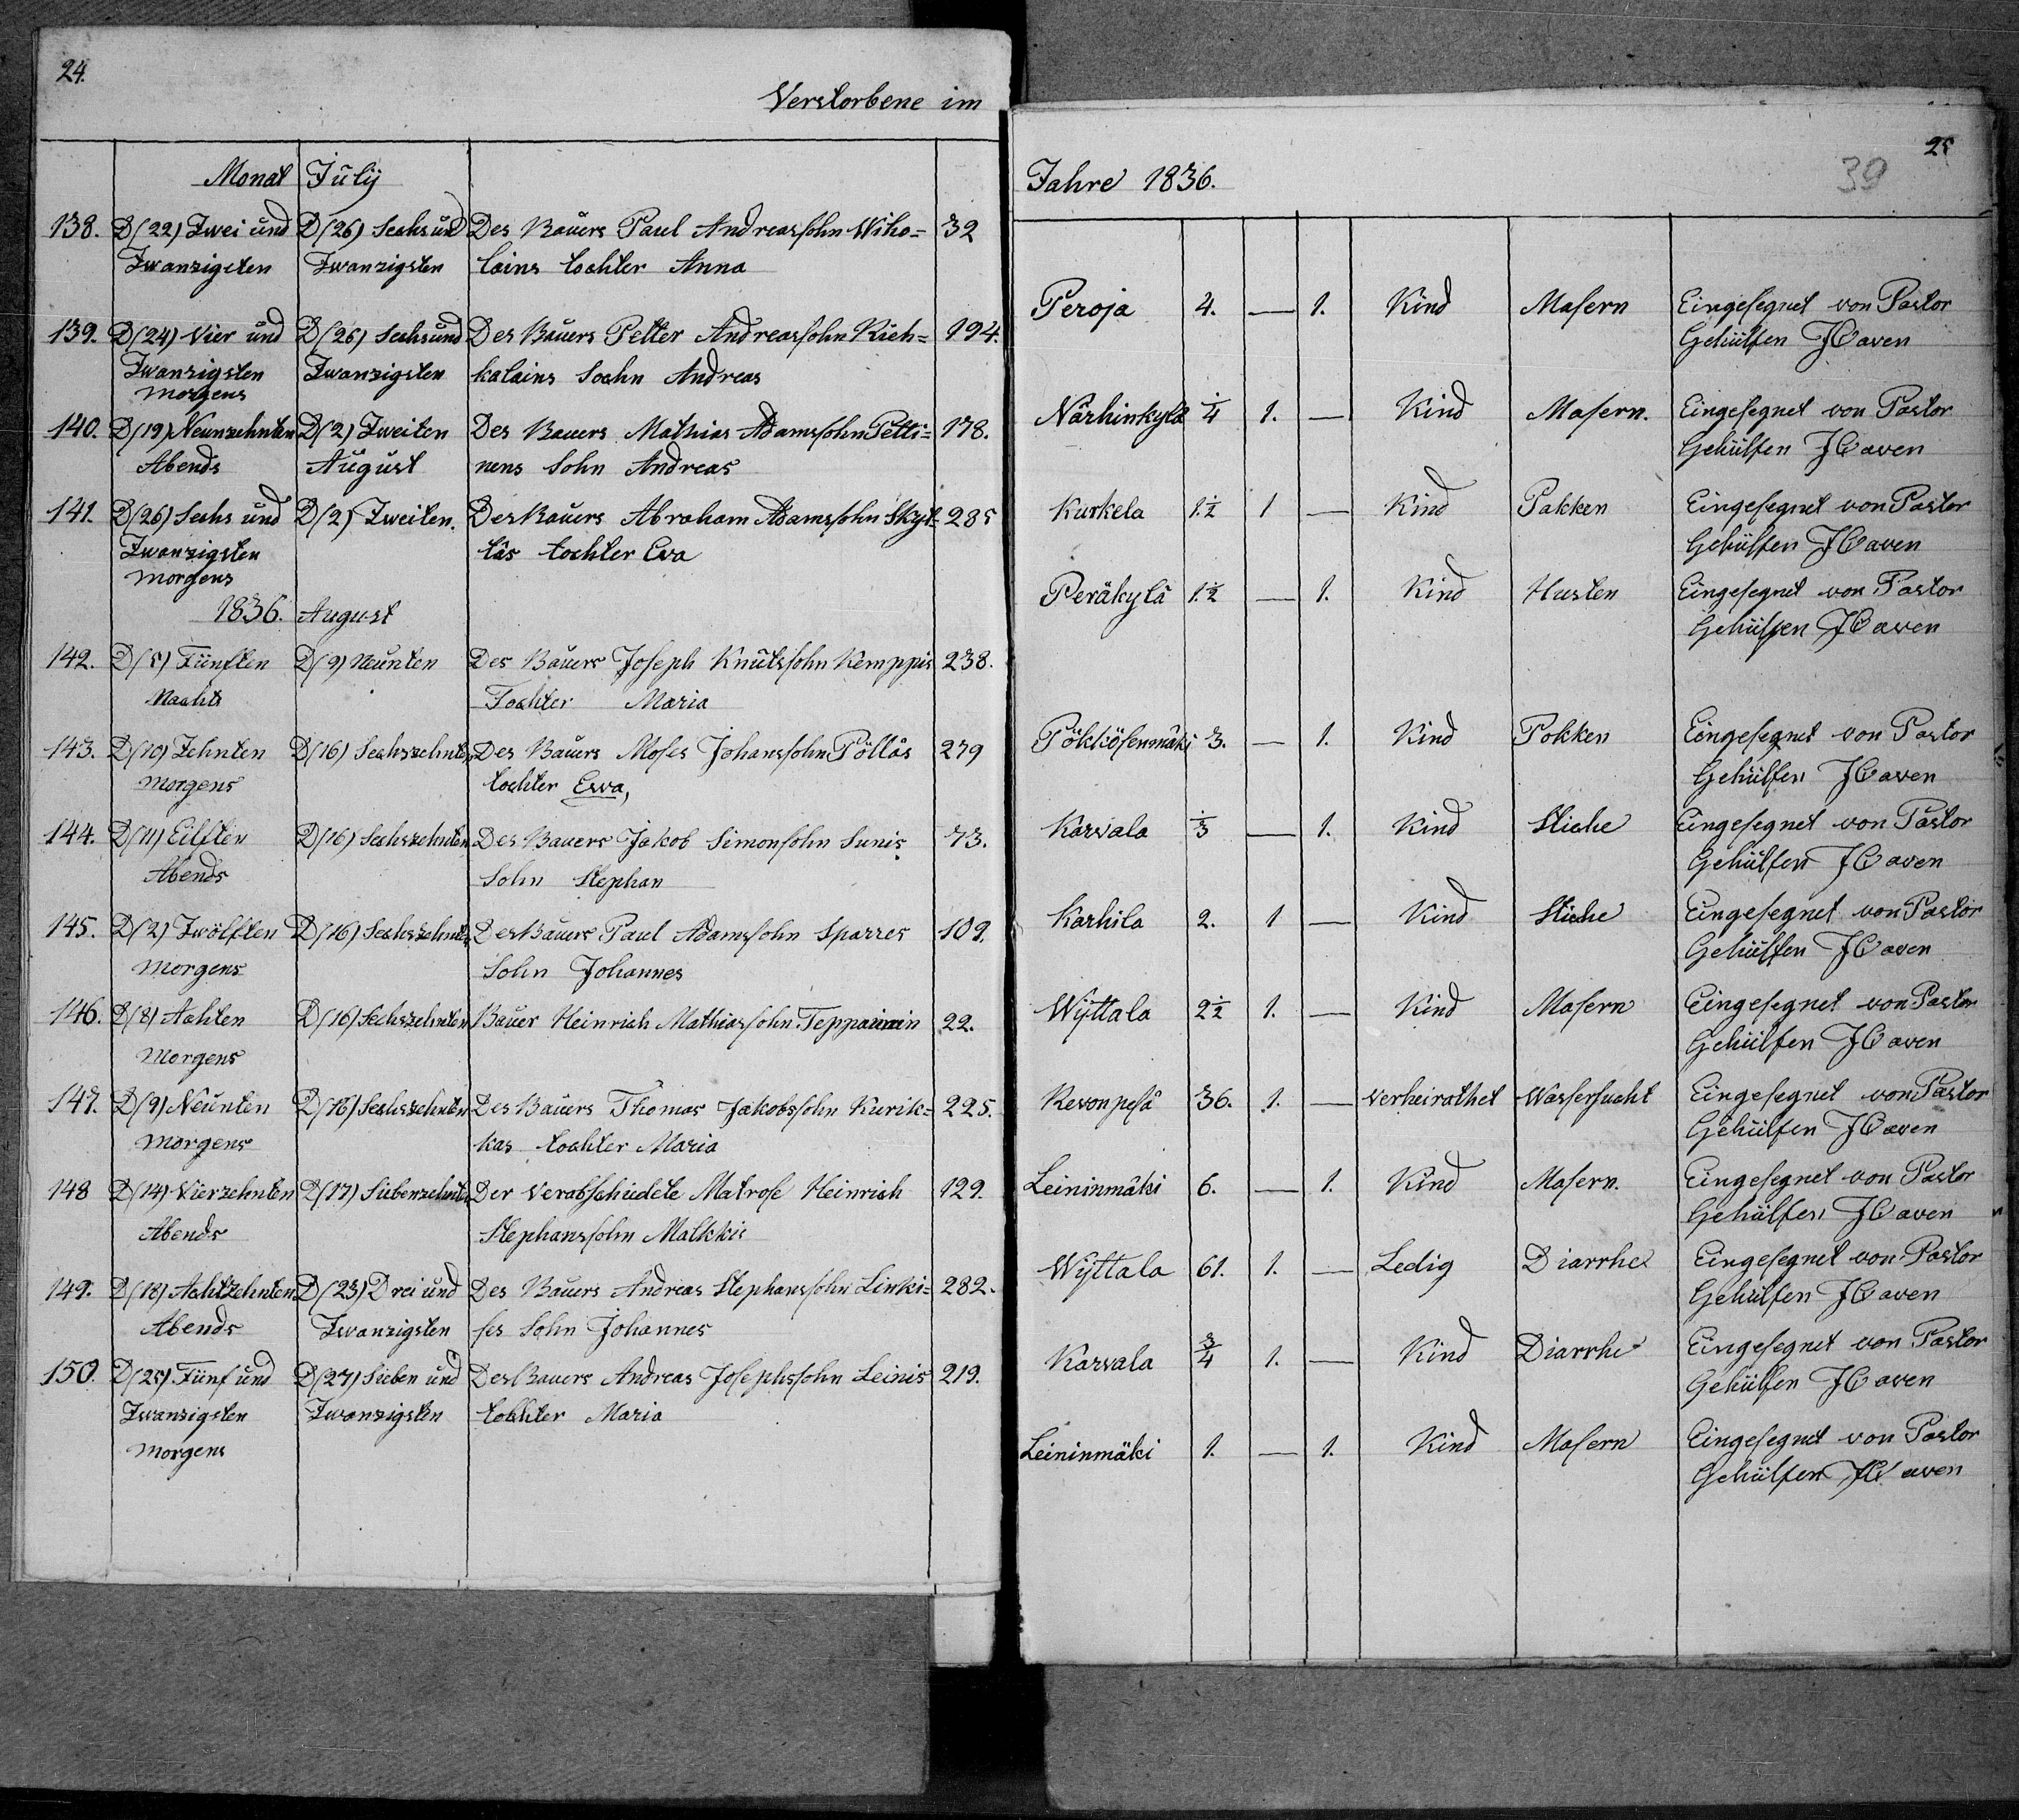 24.
Verstorbene im
Monat Julij
138. D(22) Zwei und D(26) Sechs und Des Bauers Paul Andreassohn Wiho= 32
Zwanzigsten Zwanzigsten lains tochter Anna
139. D(24) Vier und D(26) Sechsund Des Bauers Petter Andreassohn Rieh= 194.
Zwanzigsten Zwanzigsten kalains Soehn Andreas
Morgens
140. D(19) Neunzehnten D(2) Zweiten Des Bauers Mathias Adamssohn Petti= 178.
Abends August nens Sohn Andreas
141. D(26) Sechs und D(2) Zweiten. Des Bauers Abraham Adamssohn Skyt= 285
Zwanzigsten täs tochter Eva
Morgens
1836. August
142. D(5) Fünften D(9) Neunten Des Bauers Joseph Knutssohn Kemppis 238.
Nachts Tochter Maria
143. D(10) Zehnten D(16) Sechszehnten Des Bauers Moses Johanssohn Pölläs 279
Morgens tochter Ewa,
144. D(11) Eilften D(16) Sechszehnten Des Bauers Jakob Simonsohn Sunis 73.
Abends Sohn Stephan
145. D(2) Zwölften D(16) Sechszehnten Des Bauers Paul Adamssohn Sparres 109.
Morgens Sohn Johannes
146. D(8) Achten D(16) Sechszehnten Bauer Heinrich Mathiassohn Teppainain 22.
Morgens
147. D(9) Neunten D(16) Sechszehnten Des Bauers Thomas Jakobssohn Kurik= 225.
Morgens kas tochter Maria
148 D(14) Vierzehnten D(17) Siebenzehnten Der Verabschiedete Matrose Heinrich 129.
Abends Stephanssohn Matkkis
149. D(18) Achtzehnten D(23) Drei und Des Bauers Andreas Stephanssohn Linki= 282.
Abends Zwanzigsten ses Sohn Johannes
150. D(25) Fünf und D(27) Sieben und Des Bauers Andreas Josephssohn Leinis 219.
Zwanzigsten Zwanzigsten tochter Maria
Morgens
25
39
Jahre 1836.
Peroja 4. — 1. Kind Masern Eingesegnet von Pastor
Gehülfen JCaven
Närhinkylä 1/4 1. — Kind Masern. Eingesegnet von Pastor
Gehülfen JCaven
Kurkela 1 1/2 1 — Kind Pakken Eingesegnet von Pastor
Gehülfen JCaven
Peräkylä 1 1/2 — 1. Kind Husten Eingesegnet von Pastor
Gehülfen JCaven
Pökkösenmäki 3. — 1. Kind Pokken Eingesegnet von Pastor
Gehülfen JCaven
Karvala 1/3 — 1. Kind Stiche Eingesegnet von Pastor
Gehülfen JCaven
Karhila 2. 1 — Kind Stiche Eingesegnet von Pastor
Gehülfen JCaven
Wijttala 2 1/2 1. — Kind Masern Eingesegnet von Pastor
Gehülfen JCaven
Revonpesä 36. 1. — Verheirathet Wassersucht Eingesegnet von Pastor
Gehülfen JCaven
Leininmäki 6. — 1. Kind Masern. Eingesegnet von Pastor
Gehülfen JCaven
Wijttala 61. 1. — Ledig Diarrhe Eingesegnet von Pastor
Gehülfen JCaven
Karvala 3/4 1. — Kind Diarrhe Eingesegnet von Pastor
Gehülfen JCaven
Leininmäki 1. — 1. Kind Masern Eingesegnet von Pastor
Gehülfen JCaven